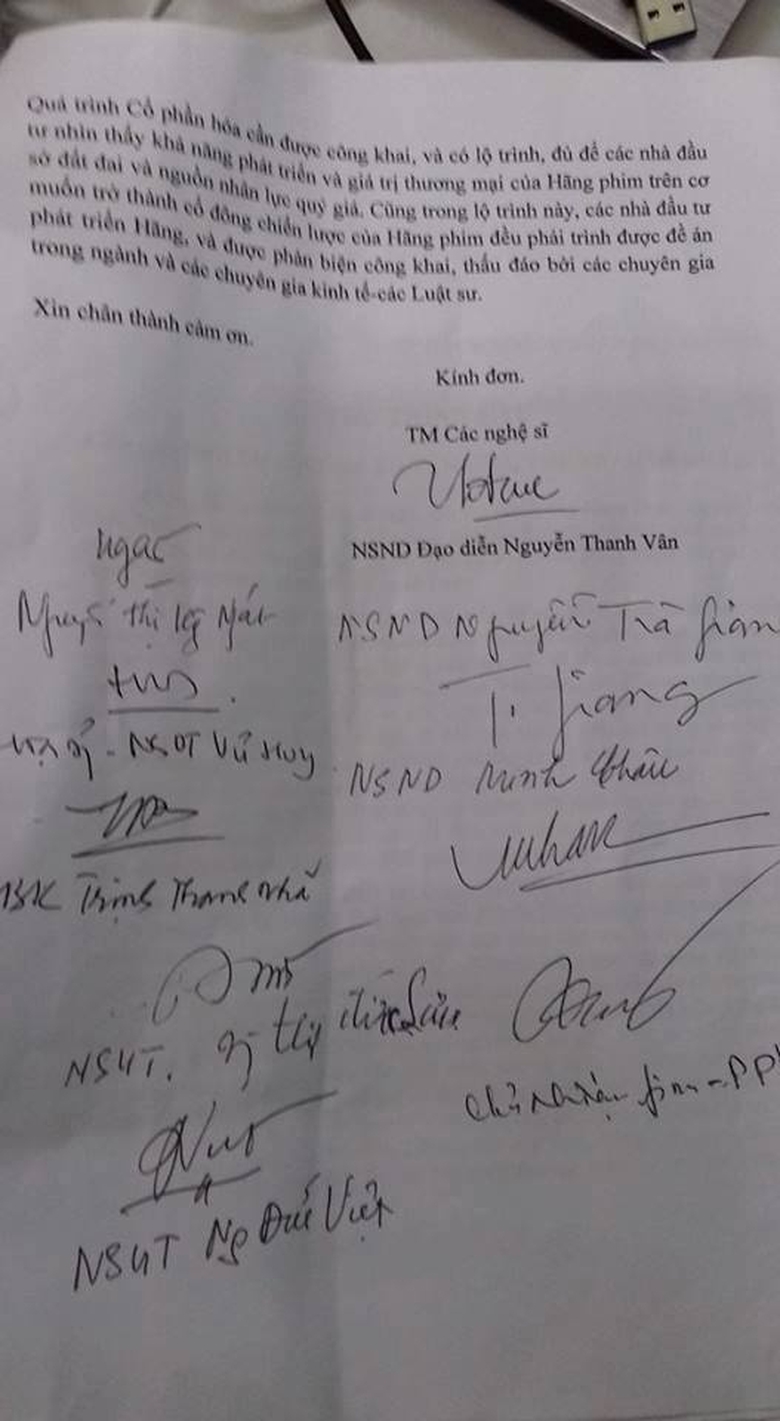 Quá trình Cổ phần hóa cần được công khai, và có lộ trình, đủ để các nhà đầu
tư nhìn thấy khả năng phát triển và giá trị thương mại của Hãng phim trên cơ
sở đất đai và nguồn nhân lực quý giá. Cũng trong lộ trình này, các nhà đầu tư
muốn trở thành cổ đông chiến lược của Hãng phim đều phải trình được đề án
phát triển Hãng, và được phản biện công khai, thấu đáo bởi các chuyên gia
trong ngành và các chuyên gia kinh tế-các Luật sư.
Xin chân thành cảm ơn.
Kính đơn.
TM Các nghệ sĩ
NSND Đạo diễn Nguyễn Thanh Vân
Ngac
thị
NSND Nguyễn Trà Giang
T. Giang
NSƯT Vũ Huy
NSND Minh Châu
BK Trịnh Thanh Nhã
NSƯT.
Chủ nhiệm fim - PP
NSƯT Ng Đức Việt